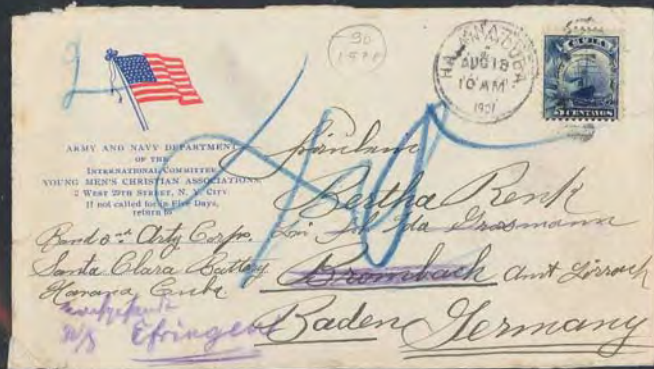 90
HAVANA, CUBA.
AUG 18
10 AM
1901
CUBA
5 CENTAVOS
ARMY AND NAVY DEPARTMENT
OF THE
INTERNATIONAL COMMITTEE
YOUNG MEN'S CHRISTIAN ASSOCIATIONS,
2 West 29th Street, N. Y. City.
If not called for in Five Days,
return to
Band 2nd Arty Corps.
Santa Clara Battery
Havana Cuba
Fräulein
Bertha Renk
bei Frl Ida Grasmann
Brombach Amt Lörrach
Baden Germany
Efringen